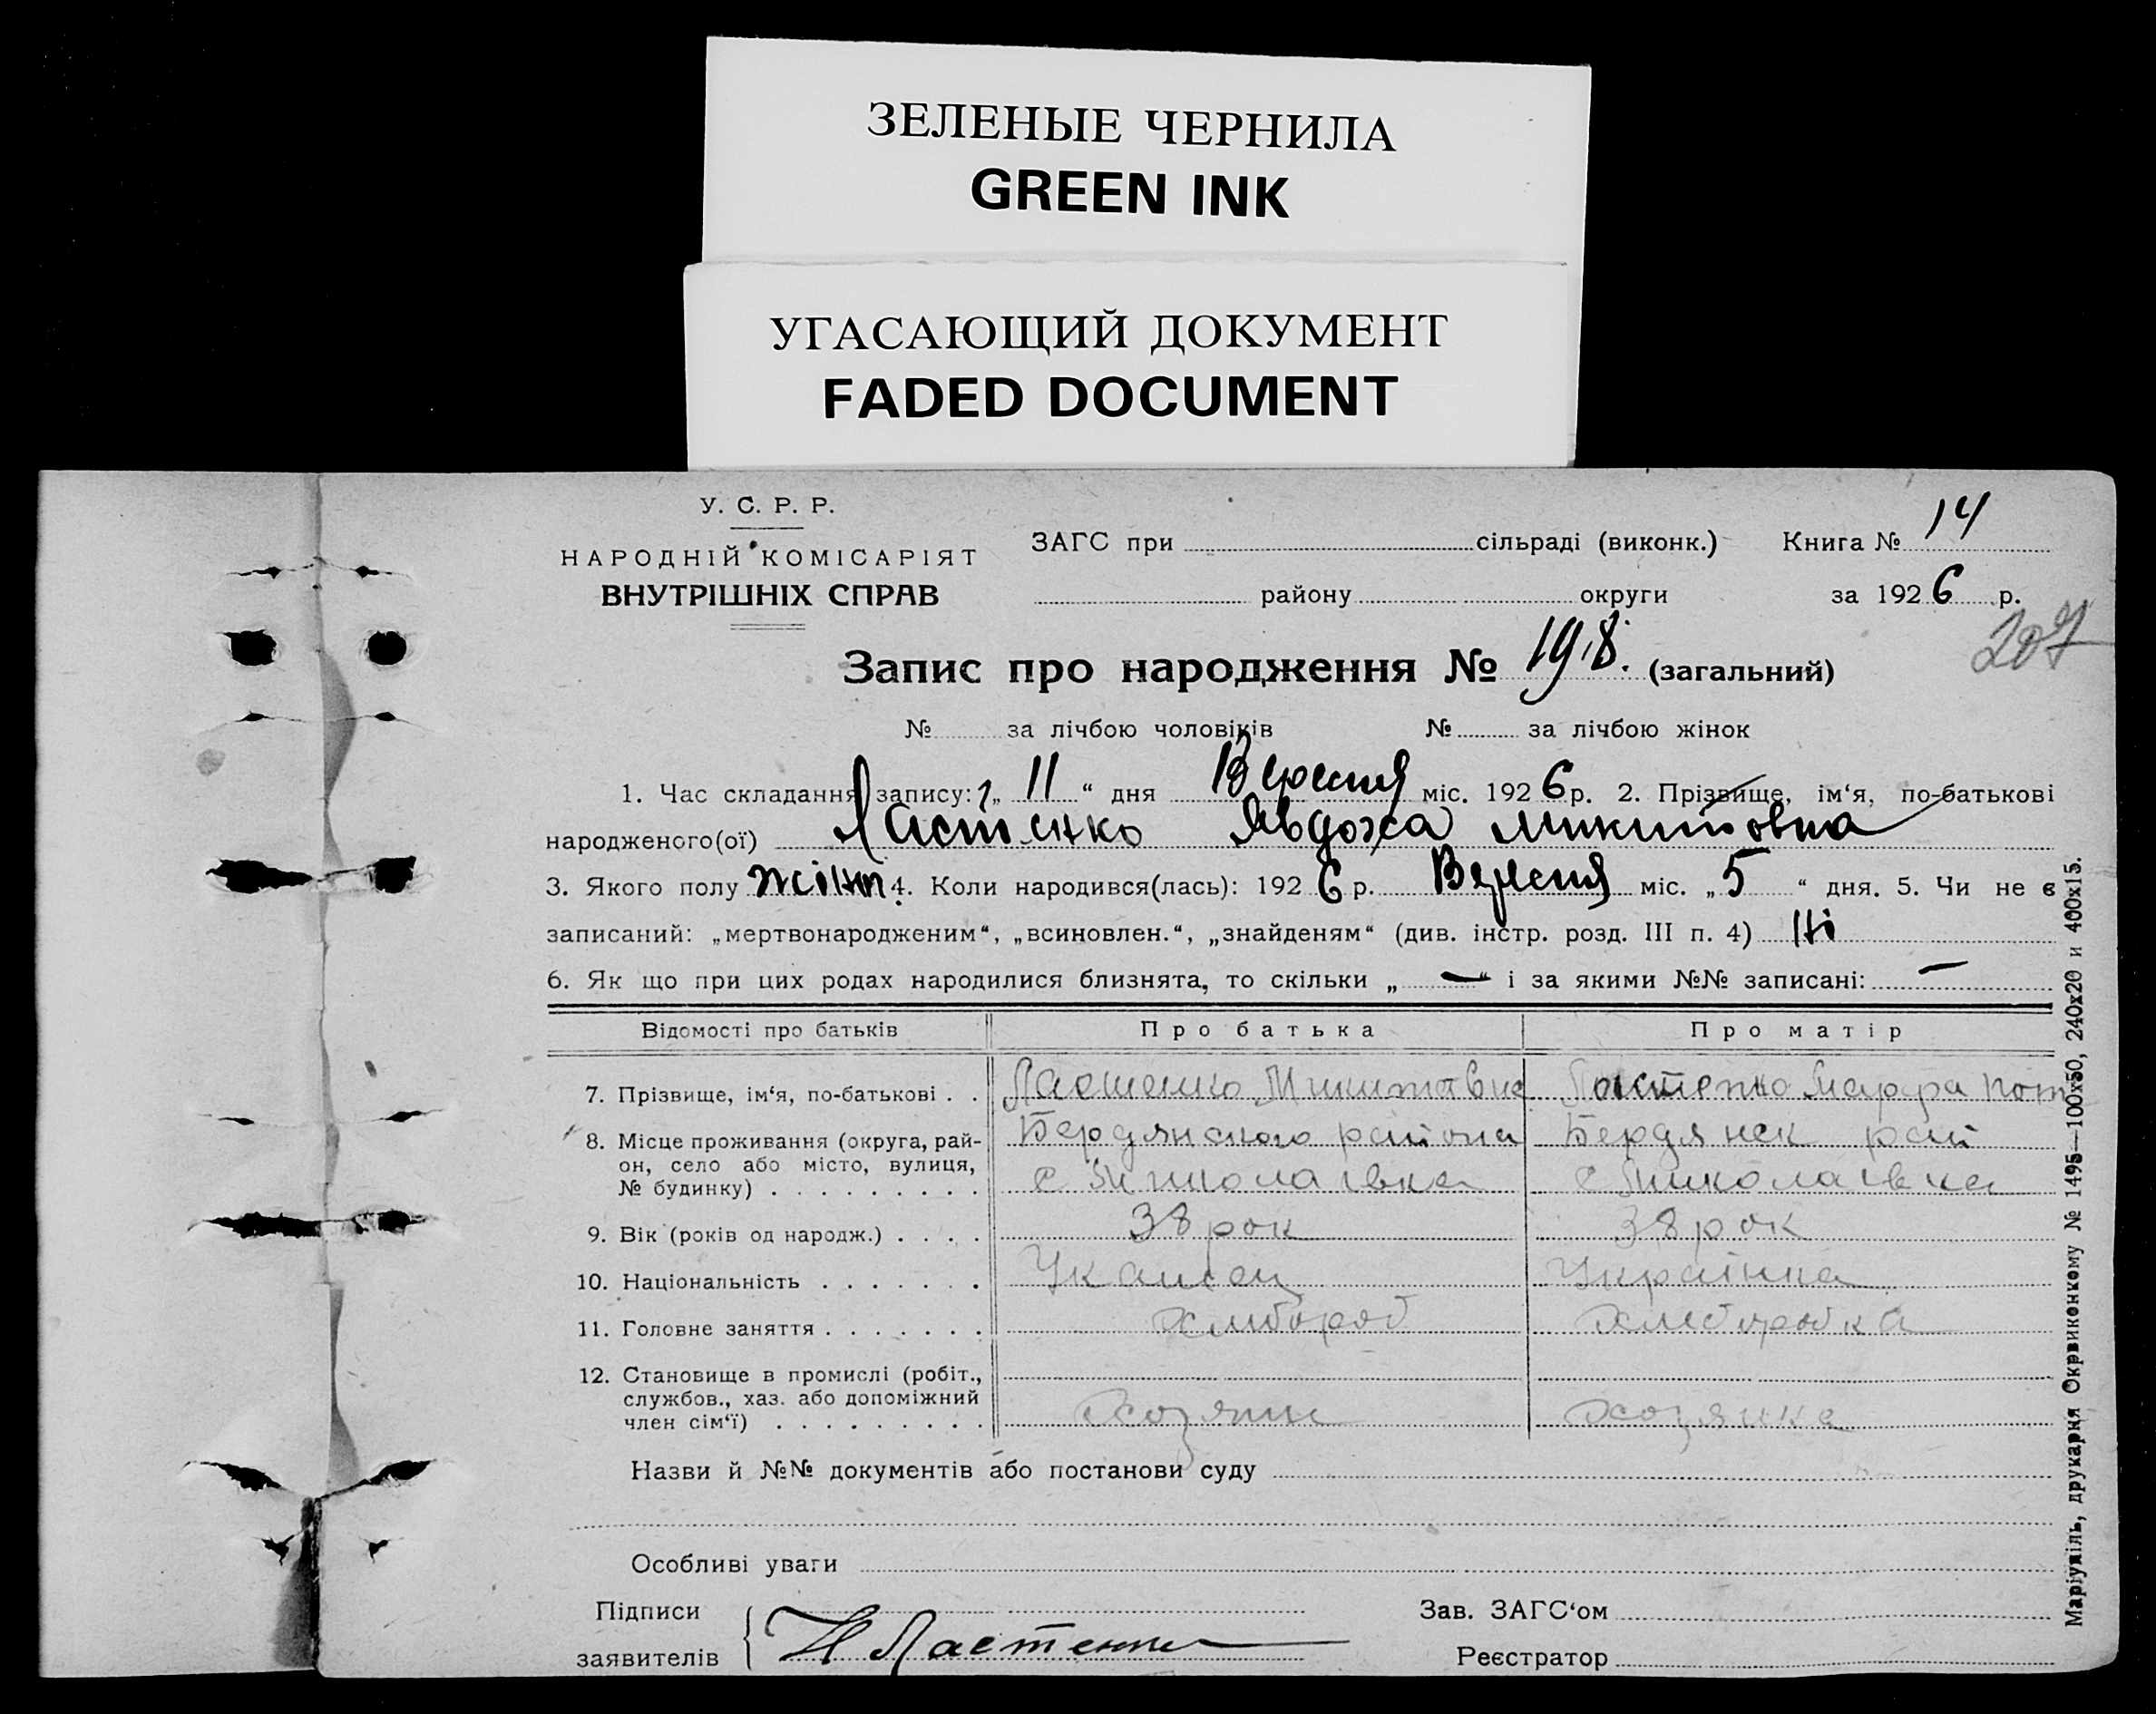 ЗЕЛЕНЫЕ ЧЕРНИЛА
GREEN INK
УГАСАЮЩИЙ ДОКУМЕНТ
FADED DOCUMENT
У. С. Р. Р.
НАРОДНІЙ КОМІСАРІЯТ
ВНУТРІШНІХ СПРАВ
ЗАГС при сільраді (виконк.) Книга № 14
району округи за 1926 р.
207
Запис про народження № 198. (загальний)
№ за лічбою чоловіків № за лічбою жінок
1. Час складання запису: „11“ дня Вересня міс. 1926 р. 2. Прізвище, ім‘я, по-батькові
народженого(ої) Ластенко Явдоха Микитовна
3. Якого полу жіноч. 4. Коли народився(лась): 1926 р. Вересня міс. „5“ дня. 5. Чи не є
записаний: „мертвонародженим“, „всиновлен.“, „знайденям“ (див. інстр. розд. III п. 4) Ні
6. Як що при цих родах народилися близнята, то скільки „—“ і за якими №№ записані: —
Відомості про батьків Про батька Про матір
7. Прізвище, ім‘я, по-батькові . . Ластенко Ластенко
8. Місце проживання (округа, рай- Бердянского района Бердянск рай
он, село або місто, вулиця, с Миколаівка с Миколаівка
№ будинку) . . . . . . . . .
9. Вік (років од народж.) . . . . 38 рок 38 рок
10. Національність . . . . . . . Українка
11. Головне заняття . . . . . . . хлибороб
12. Становище в промислі (робіт.,
службов., хаз. або допоміжний
член сім‘ї) . . . . . . . . . Хозяин Хозяика
Назви й №№ документів або постанови суду
Особливі уваги
Підписи Зав. ЗАГС‘ом
заявителів Н Ластенко Реєстратор
Маріупіль, друкарня Окрвиконкому № 1495—100х50, 240х20 и 400х15.